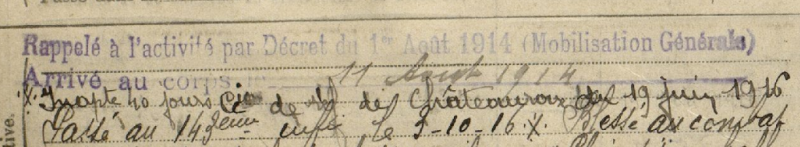 Rappelé à l'activité par Décret du 1er Août 1914 (Mobilisation Générale)
Arrivé au corps 11 Août 1914
X. Inapte 40 jours Cie de de Châteauroux du 19 juin 1916
Passé au 143eme infie le 3-10-16. X. Blessé au combat
tive.